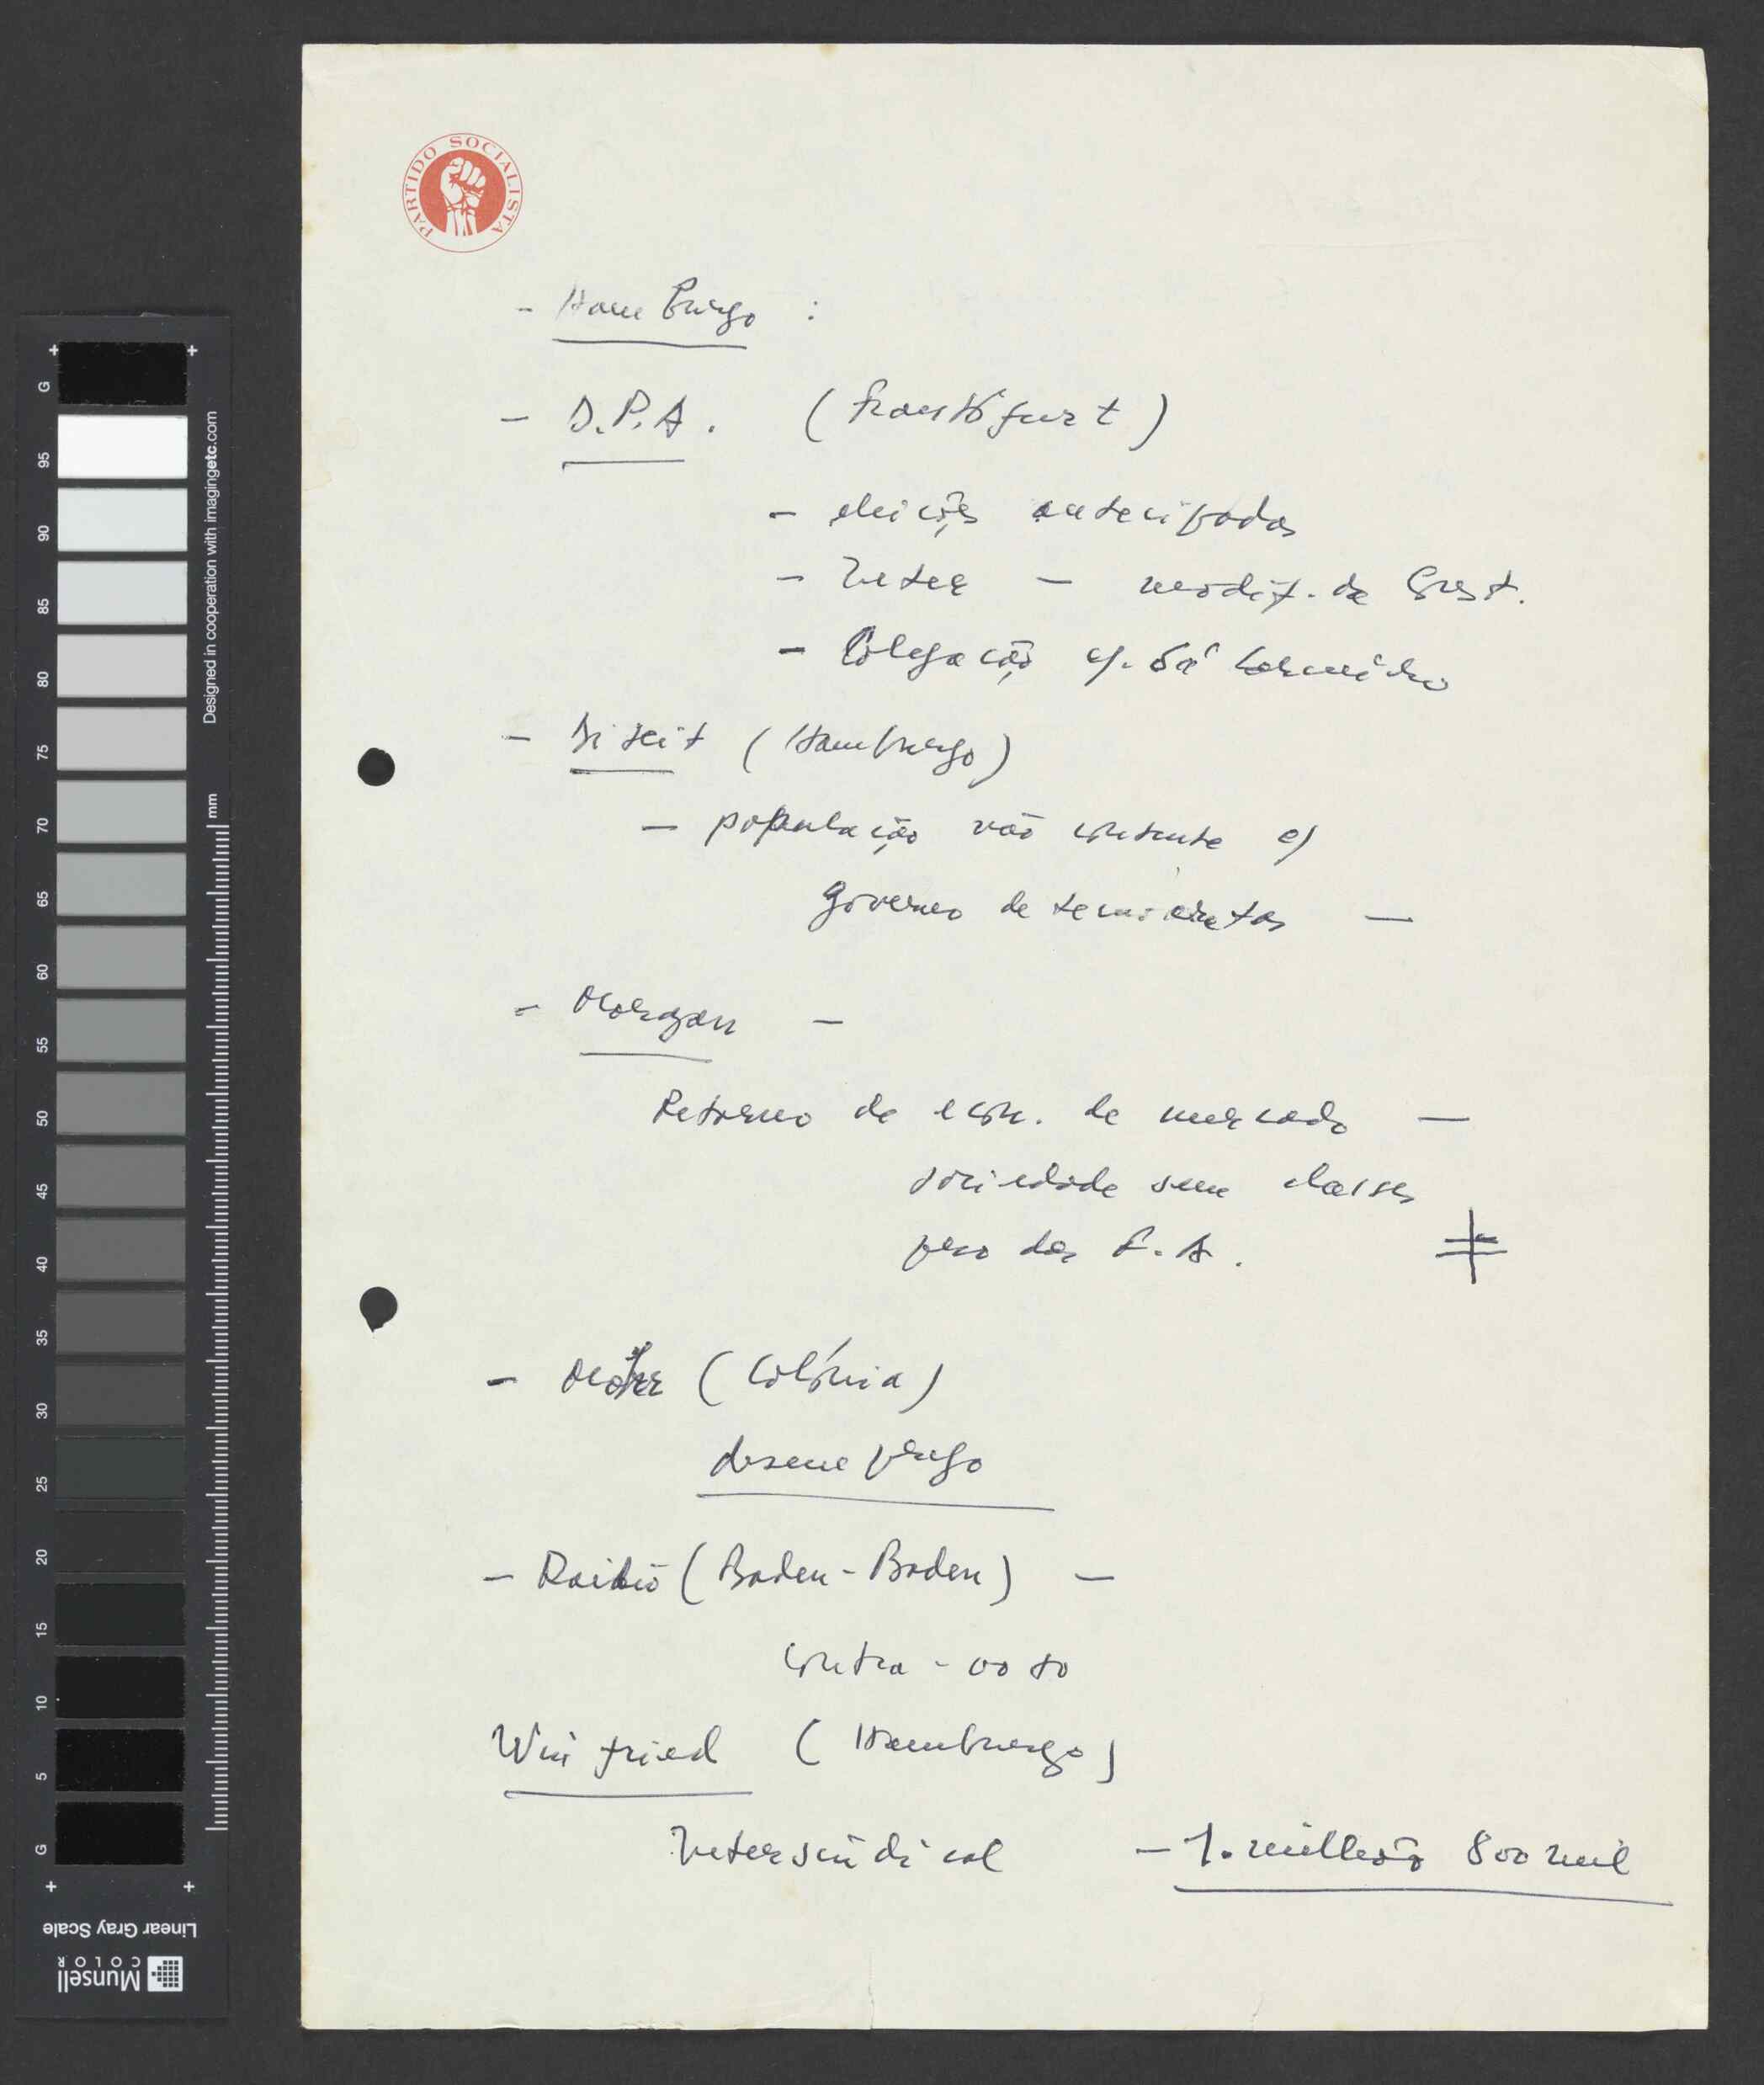 PARTIDO SOCIALISTA
- Hamburgo :
- D.P.A. (Frankfurt)
- eleições antecipadas
- Inter - modif. da Const.
- Coligação c/. Sá Carneiro
- Di Zeit (Hamburgo)
- população não contente c/
governo de tecnocratas -
- Morgan -
Retorno da econ. de mercado -
sociedade sem classes
peso das F.A.
(Colónia)
desemprego
- Rádio (Baden-Baden) -
contra-voto
Winfried (Hamburgo)
Intersindical - 1. milhão 800 mil
G
95
90
85
80
75
70
65
60
55
50
45
40
35
30
25
20
15
10
5
G
mm
Designed in cooperation with imagingetc.com
Linear Gray Scale
Munsell
COLOR